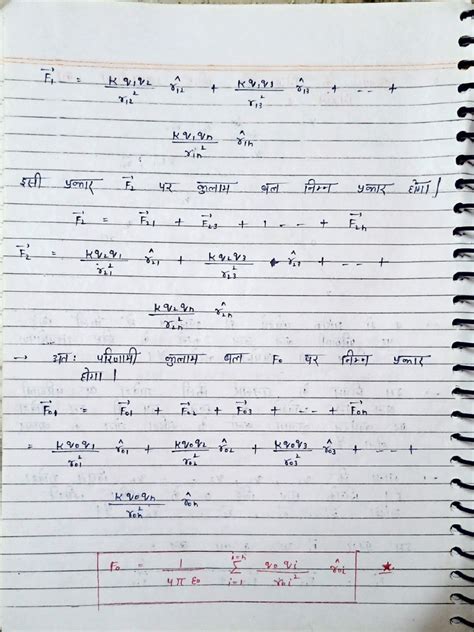 F⃗₁ = K q₁q₂ / r₁₂² r̂₁₂ + K q₁q₃ / r₁₃² r̂₁₃ + - - - +
K q₁qₙ / r₁ₙ² r̂₁ₙ
इसी प्रकार F⃗₂ पर कुलाम बल निम्न प्रकार होगा।
F⃗₂ = F⃗₂₁ + F⃗₂₃ + 1 - - - + F⃗₂ₙ
F⃗₂ = K q₂q₁ / r₂₁² r̂₂₁ + K q₂q₃ / r₂₃² r̂₂₃ + - - - +
K q₂qₙ / r₂ₙ² r̂₂ₙ
→ अतः परिणामी कुलाम बल F₀ पर निम्न प्रकार
होगा।
F⃗₀₁ = F⃗₀₁ + F⃗₀₂ + F⃗₀₃ + - - - + F⃗₀ₙ
= K q₀q₁ / r₀₁² r̂₀₁ + K q₀q₂ / r₀₂² r̂₀₂ + K q₀q₃ / r₀₃² r̂₀₃ + - - - +
K q₀qₙ / r₀ₙ² r̂₀ₙ
F₀ = 1 / 4π ε₀ Σ i=1 i=n q₀ qᵢ / r₀ᵢ² r̂₀ᵢ ★